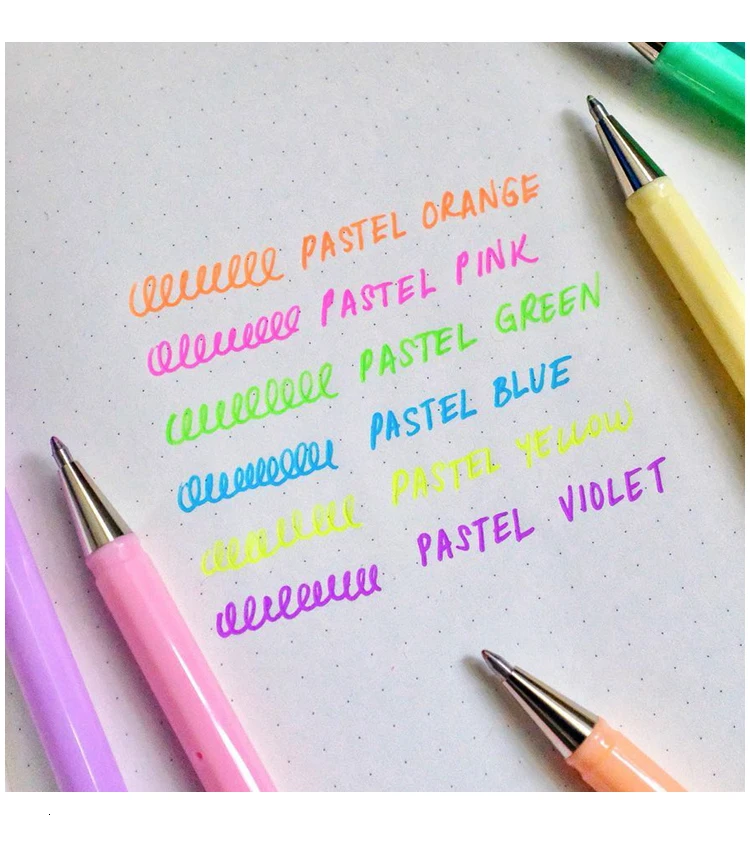 PASTEL ORANGE
PASTEL PINK
PASTEL GREEN
PASTEL BLUE
PASTEL YELLOW
PASTEL VIOLET